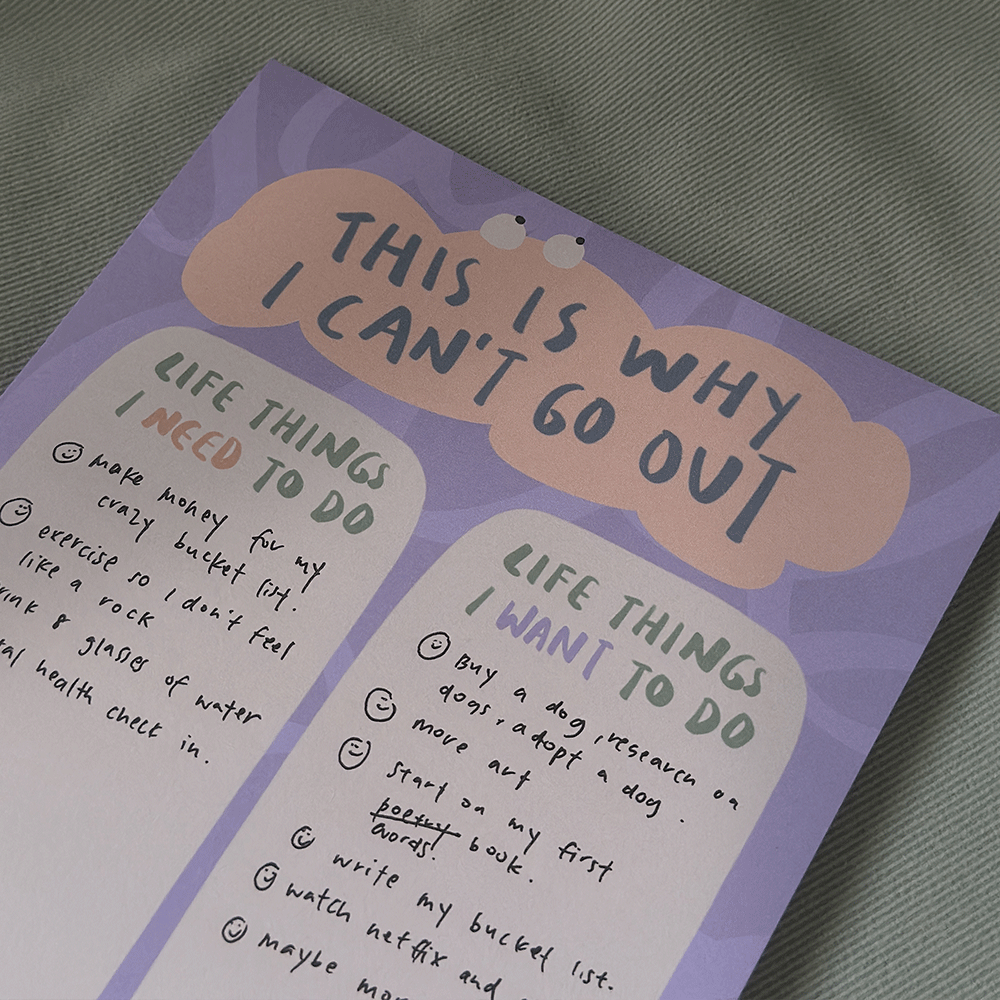 THIS IS WHY
I CAN'T GO OUT
LIFE THINGS
I NEED TO DO
make money for my
crazy bucket list.
exercise so I don't feel
like a rock
8 glasses of water
health check in.
LIFE THINGS
I WANT TO DO
Buy a dog, research on
dogs, adopt a dog.
more art
start on my first
poetry book.
words.
write my bucket list.
watch netflix and
maybe